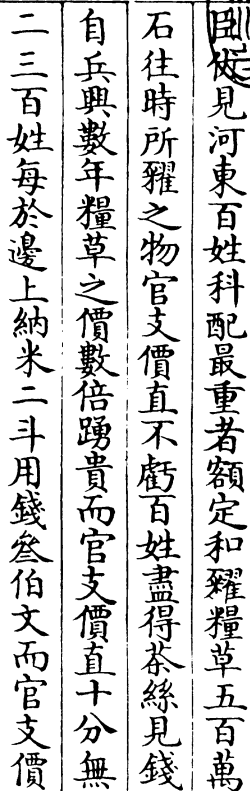 臣伏見河東百姓科配最重者額定和糴糧草五百萬
石往時所糴之物官支價直不虧百姓盡得茶絲見錢
自兵興數年糧草之價數倍踴貴而官支價直十分無
二三百姓每於邊上納米二斗用錢叄伯文而官支價